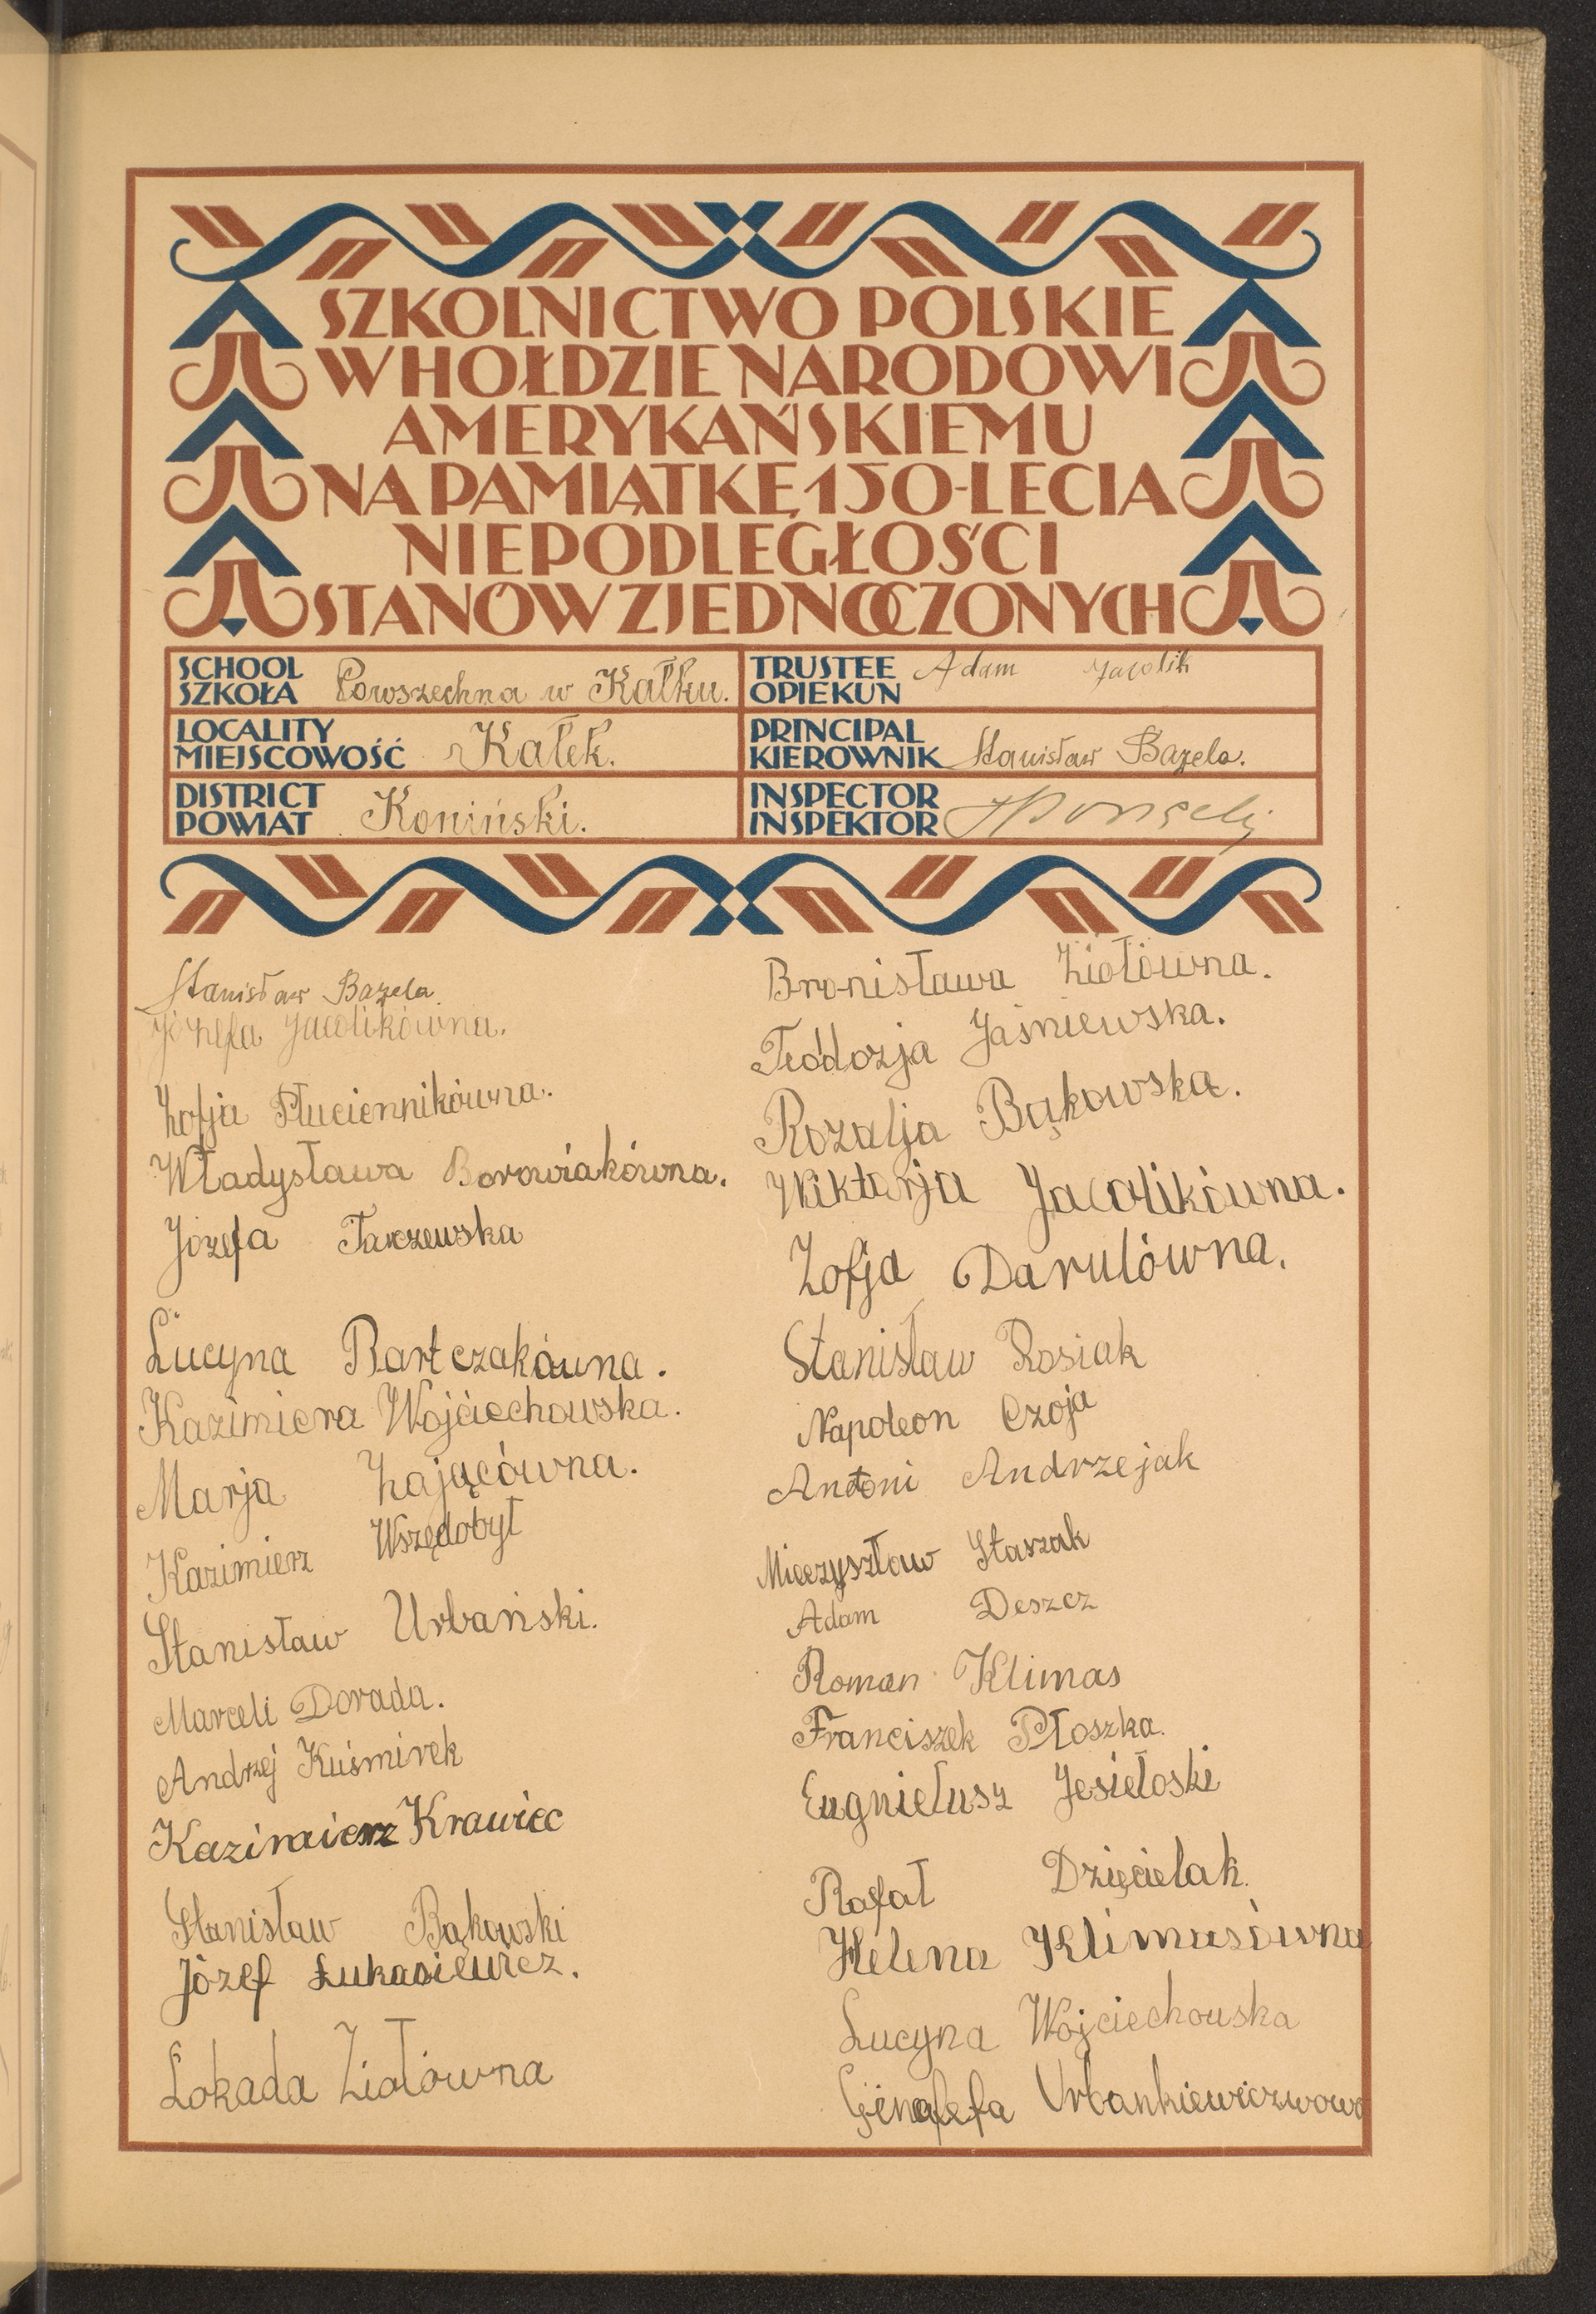 SZKOLNICTWO POLSKIE
W HOŁDZIE NARODOWI
AMERYKAŃSKIEMU
NA PAMIĄTKĘ 150-LECIA
NIEPODLEGŁOŚCI
STANÓW ZJEDNOCZONYCH
SCHOOL
SZKOŁA Powszechna w Kałku.
LOCALITY
MIEJSCOWOŚĆ Kałek.
DISTRICT
POWIAT Koniński.
TRUSTEE Adam Jacolik
OPIEKUN
PRINCIPAL
KIEROWNIK Stanisław Bazela.
INSPECTOR
INSPEKTOR
Stanisław Bazela.
Józefa Jacolikówna.
Zofja Płuciennikówna.
Władysława Borowiakówna.
Józefa Tarczewska
Lucyna Bartczakówna.
Kazimiera Wojciechowska.
Marja Zającówna.
Kazimierz Wszędobył
Stanisław Urbański.
Marceli Dorada.
Andrzej Kuśmirek
Kazimierz Krawiec
Stanisław Bąkowski
Józef Łukasiewicz.
Lokada Ziołówna
Bronisława Ziołówna.
Teodozja Jaśniewska.
Rozalja Bąkowska.
Wiktorja Jacolikówna.
Zofja Darulówna.
Stanisław Rosiak
Napoleon Czoja
Antoni Andrzejak
Mieczyszław Staszak
Adam Deszcz
Roman Klimas
Franciszek Płoszka.
Eugniełusz Jesiełoski
Rafał Dzięcielak.
Helena Klimasówna
Lucyna Wojciechouska
Urbankiewiczwowa